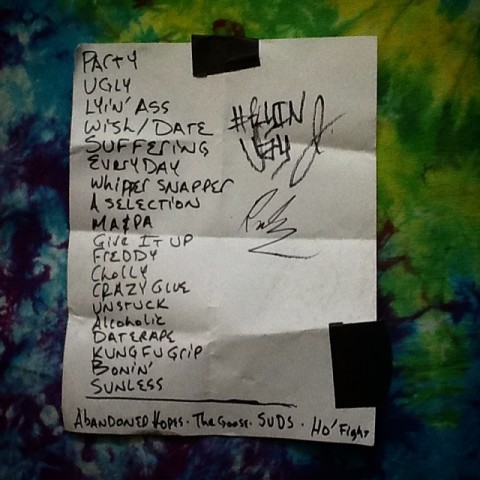 PARTY
UGLY
LYIN' ASS
WISH/DATE
SUFFERING
EVERYDAY
WHIPPER SNAPPER
A SELECTION
MA&PA
GIVE IT UP
FREDDY
CHOLLY
CRAZY GLUE
UNSTUCK
Alcoholic
DATERAPE
KUNG FU GRIP
BONIN'
SUNLESS
ABANDONED HOPES. THE GOOSE. SUDS. HO' FIGHT